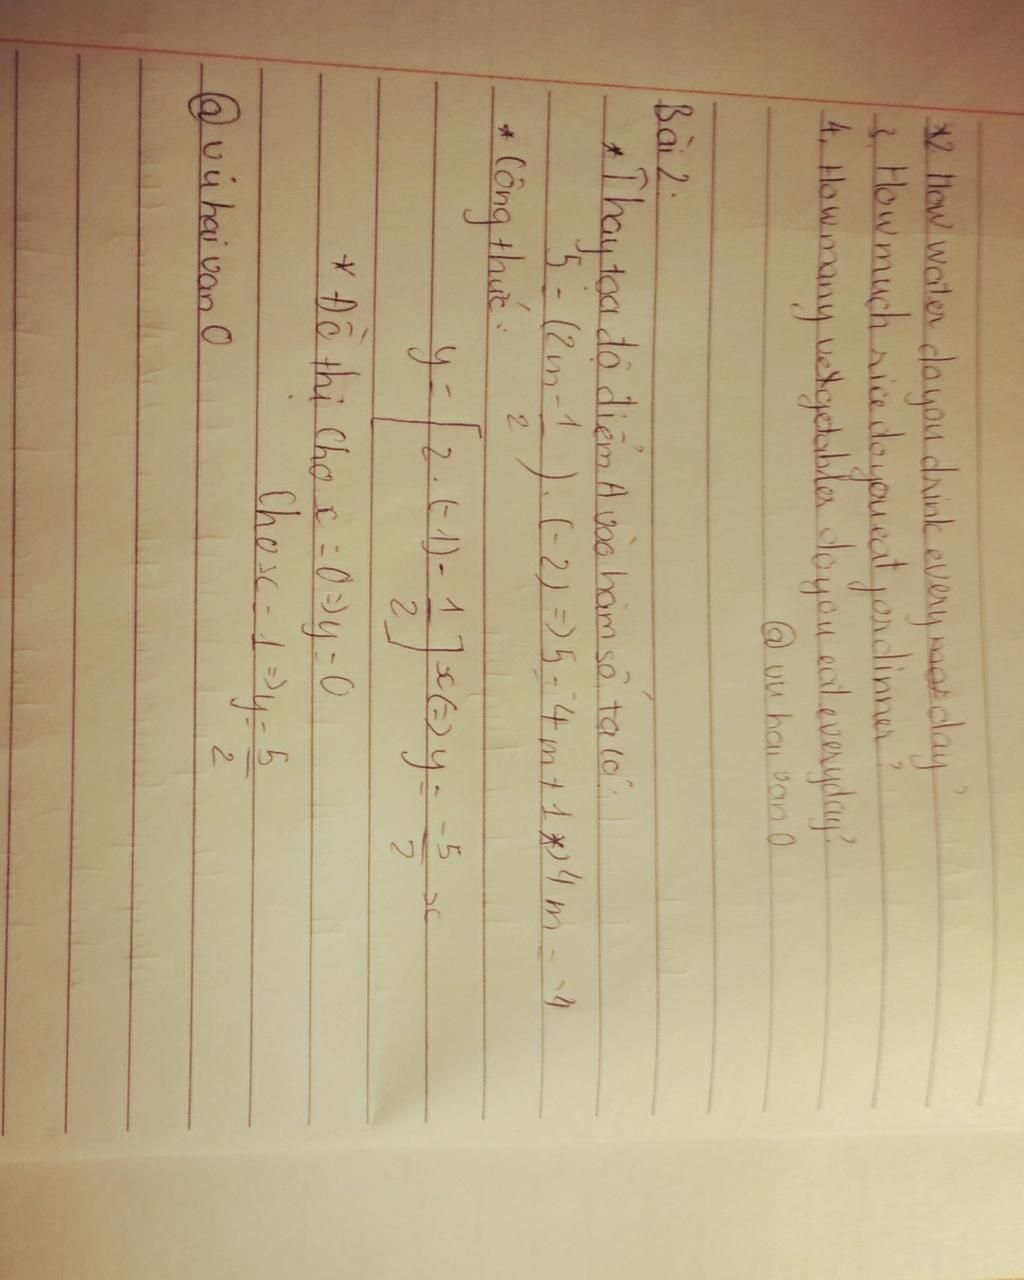 2 How water do you drink every day?
3. How much rice do you eat for dinner?
4. How many vetgetables do you eat everyday?
@ vu hai van 0
Bài 2:
* Thay tọa độ điểm A vào hàm số ta có:
5 = (2m - 1/2). (-2) => 5 = -4m + 1 => 4m = -4
* Công thức:
y = [2. (-1) - 1/2] x (=> y = -5/2 x
* Đồ thị Cho x = 0 => y = 0
Cho x = 1 => y = 5/2
@ vũ hai van 0